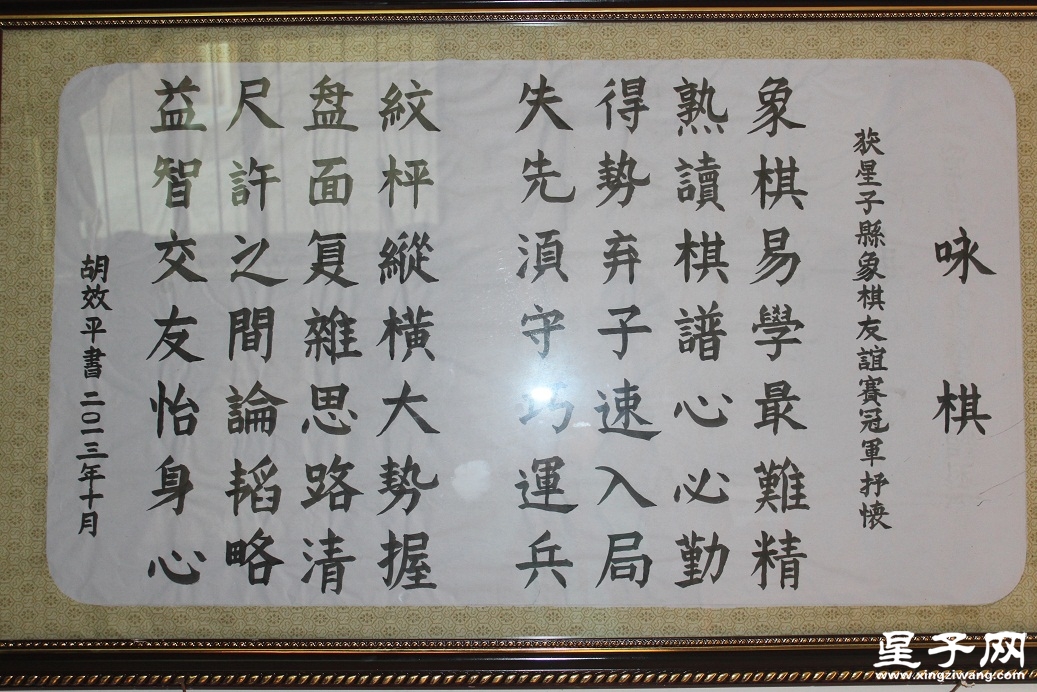 咏棋
获星子縣象棋友誼賽冠軍抒懷
象棋易學最難精
熟讀棋譜心必勤
得勢弃子速入局
失先須守巧運兵
紋枰縱橫大勢握
盘面复雜思路清
尺許之間論韬略
益智交友怡身心
胡效平書二〇一三年十月
星子网
www.xingziwang.com